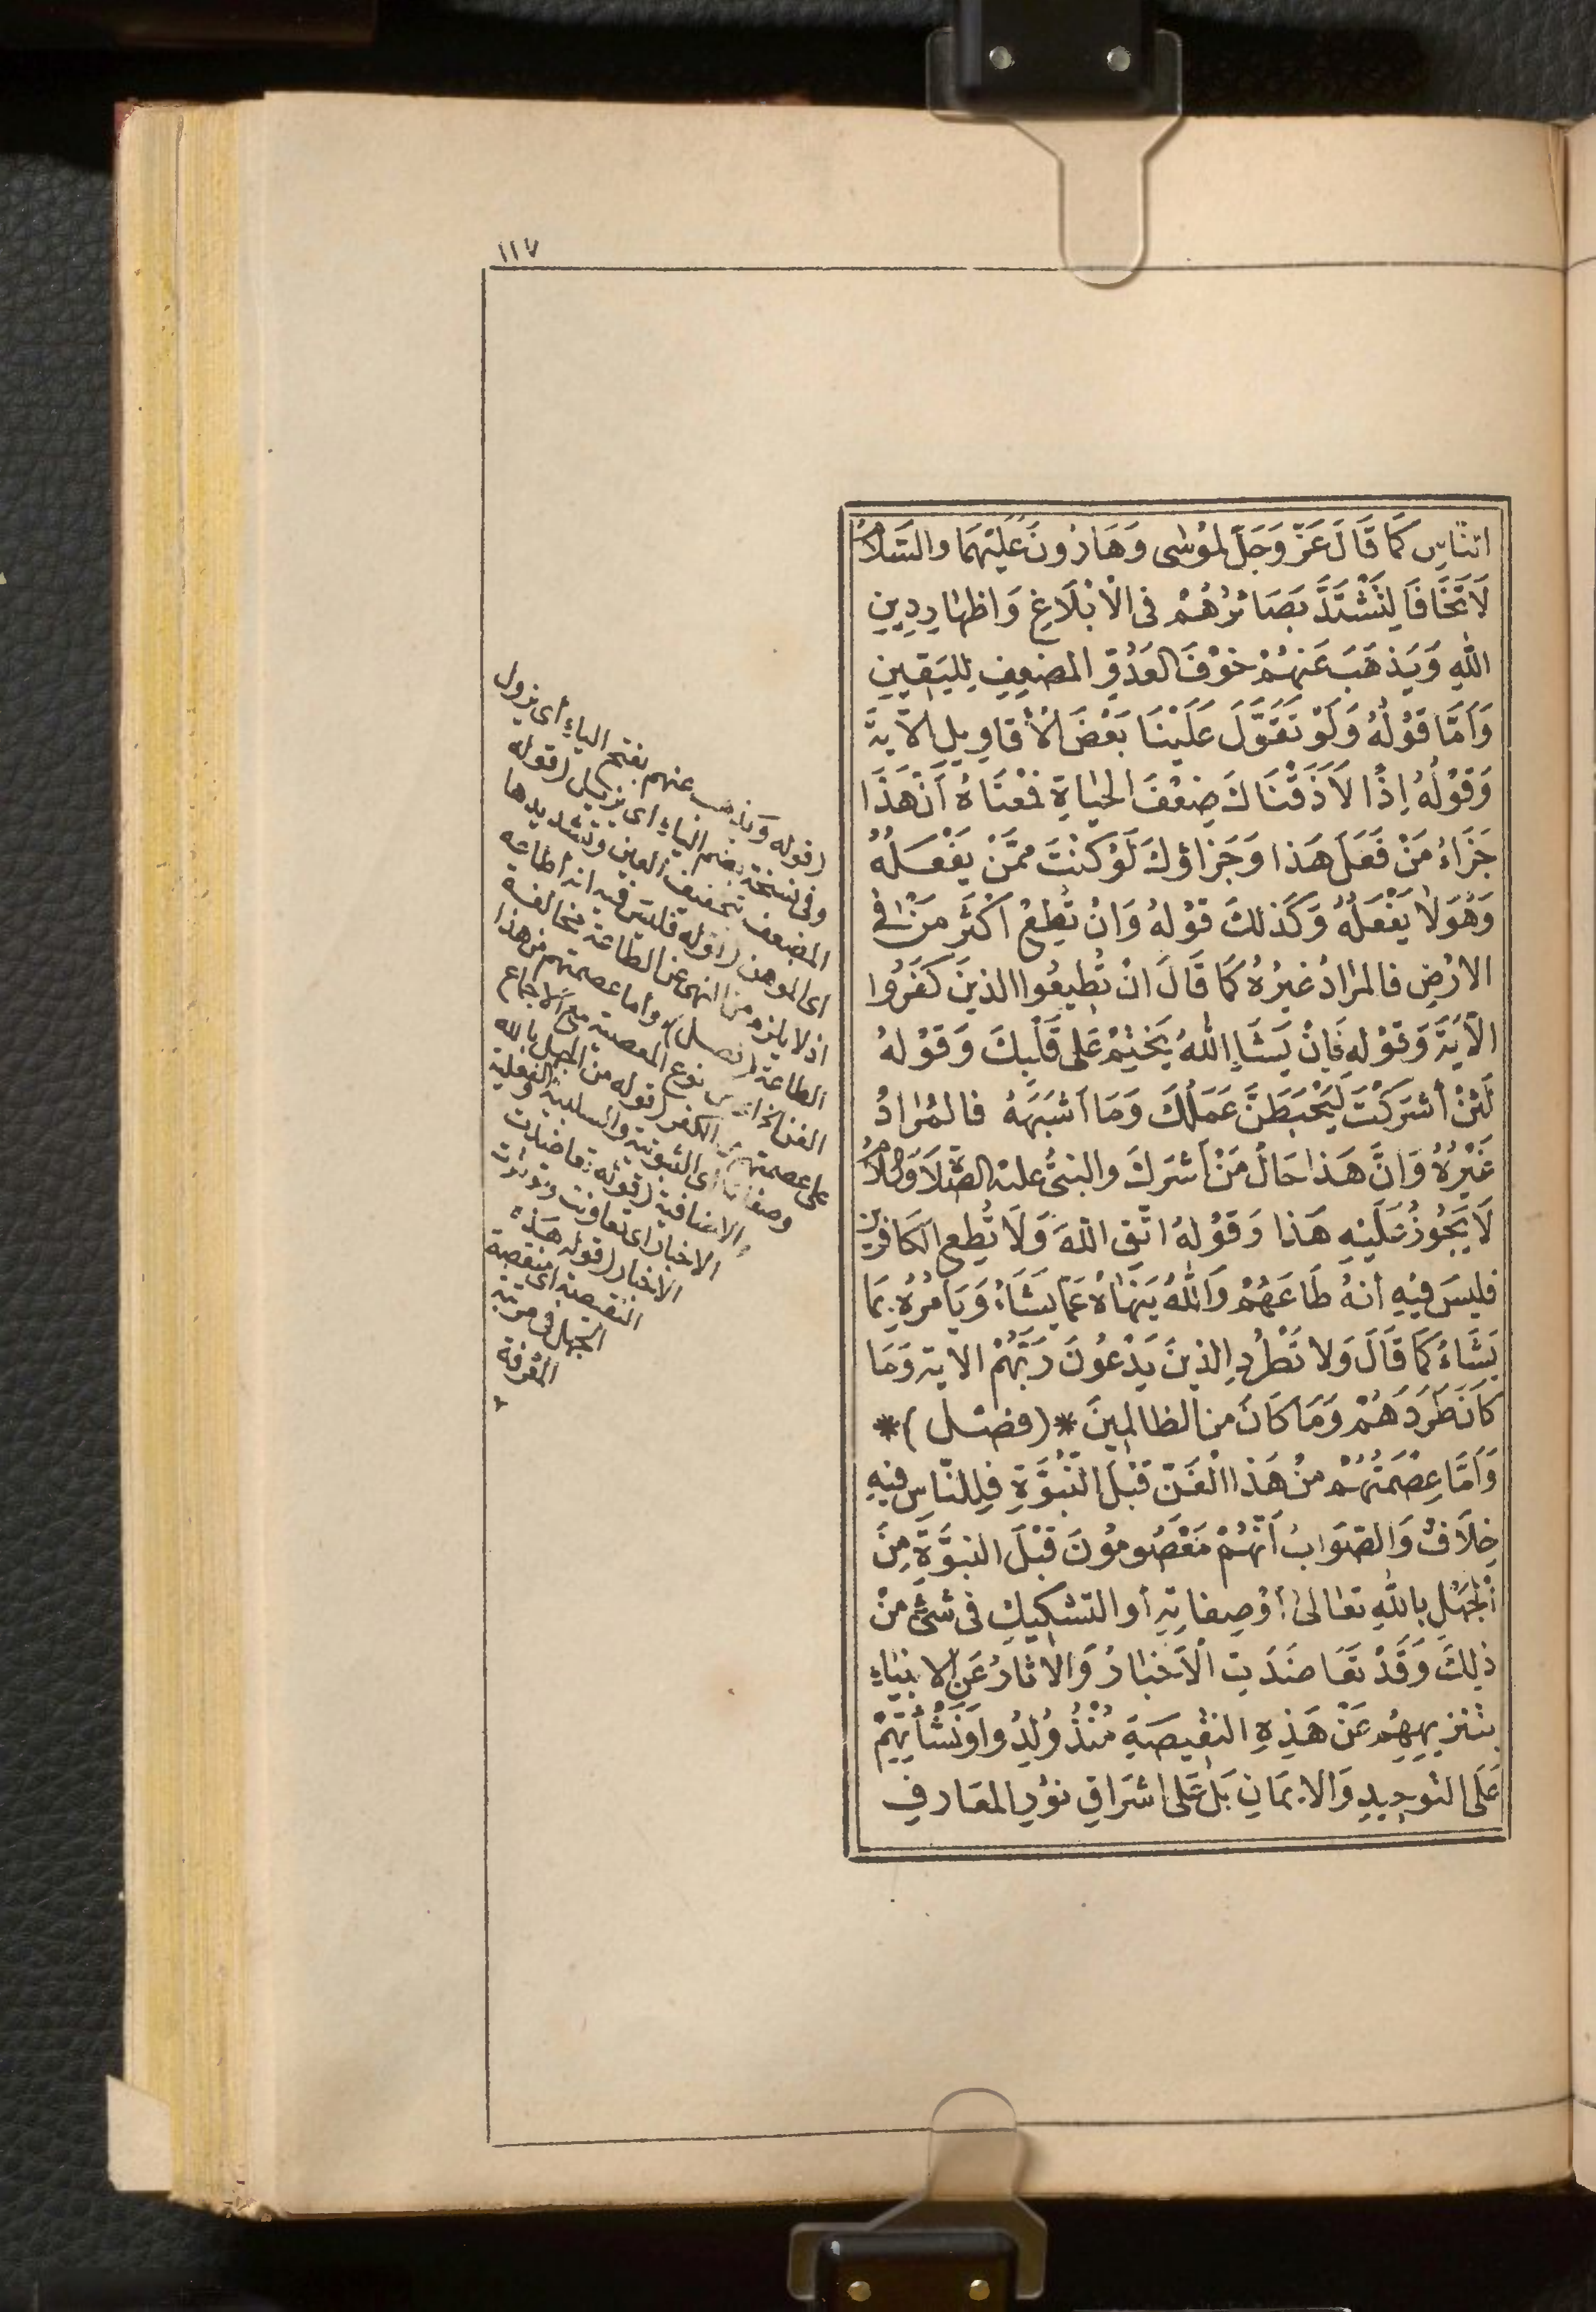 ١١٧
النَّاسِ كَمَا قَالَ عَزَّ وَجَلَّ لِمُوسٰى وَهَارُونَ عَلَيْهِمَا والسَّلَامُ
لَا تَخَافَا لِتَشْتَدَّ بَصَائِرُهُمْ فى الْاَبْلَاغِ وَاظهَارِ دِينِ
اللهِ وَيَذهَبَ عَنهُمْ خَوْفَ العَدُوِّ المضعِفِ لِليَقِينِ
وَاَمَّا قَوْلُهُ وَلَوْ تَقَوَّلَ عَلَيْنَا بَعْضَ الْأَقَاوِيلِ الآيةَ
وَقَوْلُهُ إِذًا لَاَذَقْنَاكَ ضِعْفَ الحَيَاةِ فَمعْنَاهُ أَنَّ هَذَا
جَزَاءُ مَنْ فَعَلَ هَذا وَجَزاؤكَ لَوْ كنْتَ مِمَّنْ يَفْعَلُهُ
وَهُوَ لَا يَفْعَلُهُ وَكَذلكَ قَوْلهُ وَانْ تُطِعْ اكْثَرَ مَنْ فِى
الارْضِ فالمرَادُ غيرُهُ كَمَا قَالَ انْ تُطِيعُوا الذينَ كَفَرُوا
الْآيَةَ وَقَوْلهِ فَإِنْ يَشَإِ اللهُ يَخْتِمْ عَلى قَلْبِكَ وَقَوْلهُ
لَئنْ أشرَكْتَ لَيَحْبَطَنَّ عَمَلُكَ وَمَا أشبَهَهُ فالمُرَادُ
غَيْرُهُ وَانَّ هَذا حَالُ مَنْ أشرَكَ والنبىُّ عليْه الصَّلَاة وَالسَّلَامُ
لَا يَجُوزُ عَلَيْهِ هَذا وَقَوْلهُ اتَّقِ اللهَ وَلَا تُطِعِ الكَافرين
فليسَ فيْهِ أنهُ طَاعَهُمْ وَاللهُ يَنْهَاهُ عَمَّا يَشَاءُ وَيَامُرُهُ بِمَا
يَشَاءُ كَمَا قَالَ وَلا تَطْرُدِ الذينَ يَدْعُونَ رَبَّهُمْ الاية وَمَا
كَانَ طَرَدَهُمْ وَمَا كَانَ من الظالمِينَ * (فصْل) *
وَأَمَّا عِصْمَتُهُمْ منْ هَذا الْفَنِّ قَبْلَ النُّبُوَّةِ فَلِلنَّاسِ فيهِ
خِلَافٌ وَالصَّوَابُ أَنَّهُمْ مَعْصُومُونَ قَبْلَ النبوَّةِ مِنَ
الْجَهْلِ باللهِ تعَالىٰ أوْ صِفاتِهِ أو التشكِيكِ فى شَئٍ منْ
ذلِكَ وَقَدْ تعَاضَدَتِ الْاَخبَارُ وَالاثارُ عَنِ الانبيَاءِ
بتنزِيهِهِمْ عَنْ هَذِهِ النقيصَةِ مُنْذُ وُلِدُوا وَنَشْأَتِهِمْ
عَلَى التَوحِيدِ وَالايمَانِ بَلْ عَلى اشرَاقِ نوْرِ المعَارفِ
(قوله وَيذهب عنهم بفتح الياءِ أى يزول
وفى نسخة بضم الياءِ اى يزيل (قوله
المضعف بتخفيف العين وتشديدها
اى الموهن (قوله فليسَ فيه انه أطاعهم
اذ لا يلزم من النهى عن الطاعة مخالفة
الطاعة (فصل) وأما عصمتهم من هذا
الفن اى من نوع المعصية مع الاجماع
على عصمتهم من الكفر (قوله من الجهل بالله
وصفاته أى الثبوتية والسلبية والفعلية
والاضافية (قوله تعاضدت
الاخبار اى تعاونت وتوترت
الاخبار (قوله هَذه
النقيصة اى منقصة
الجهل فى مرتبة
المعرفة